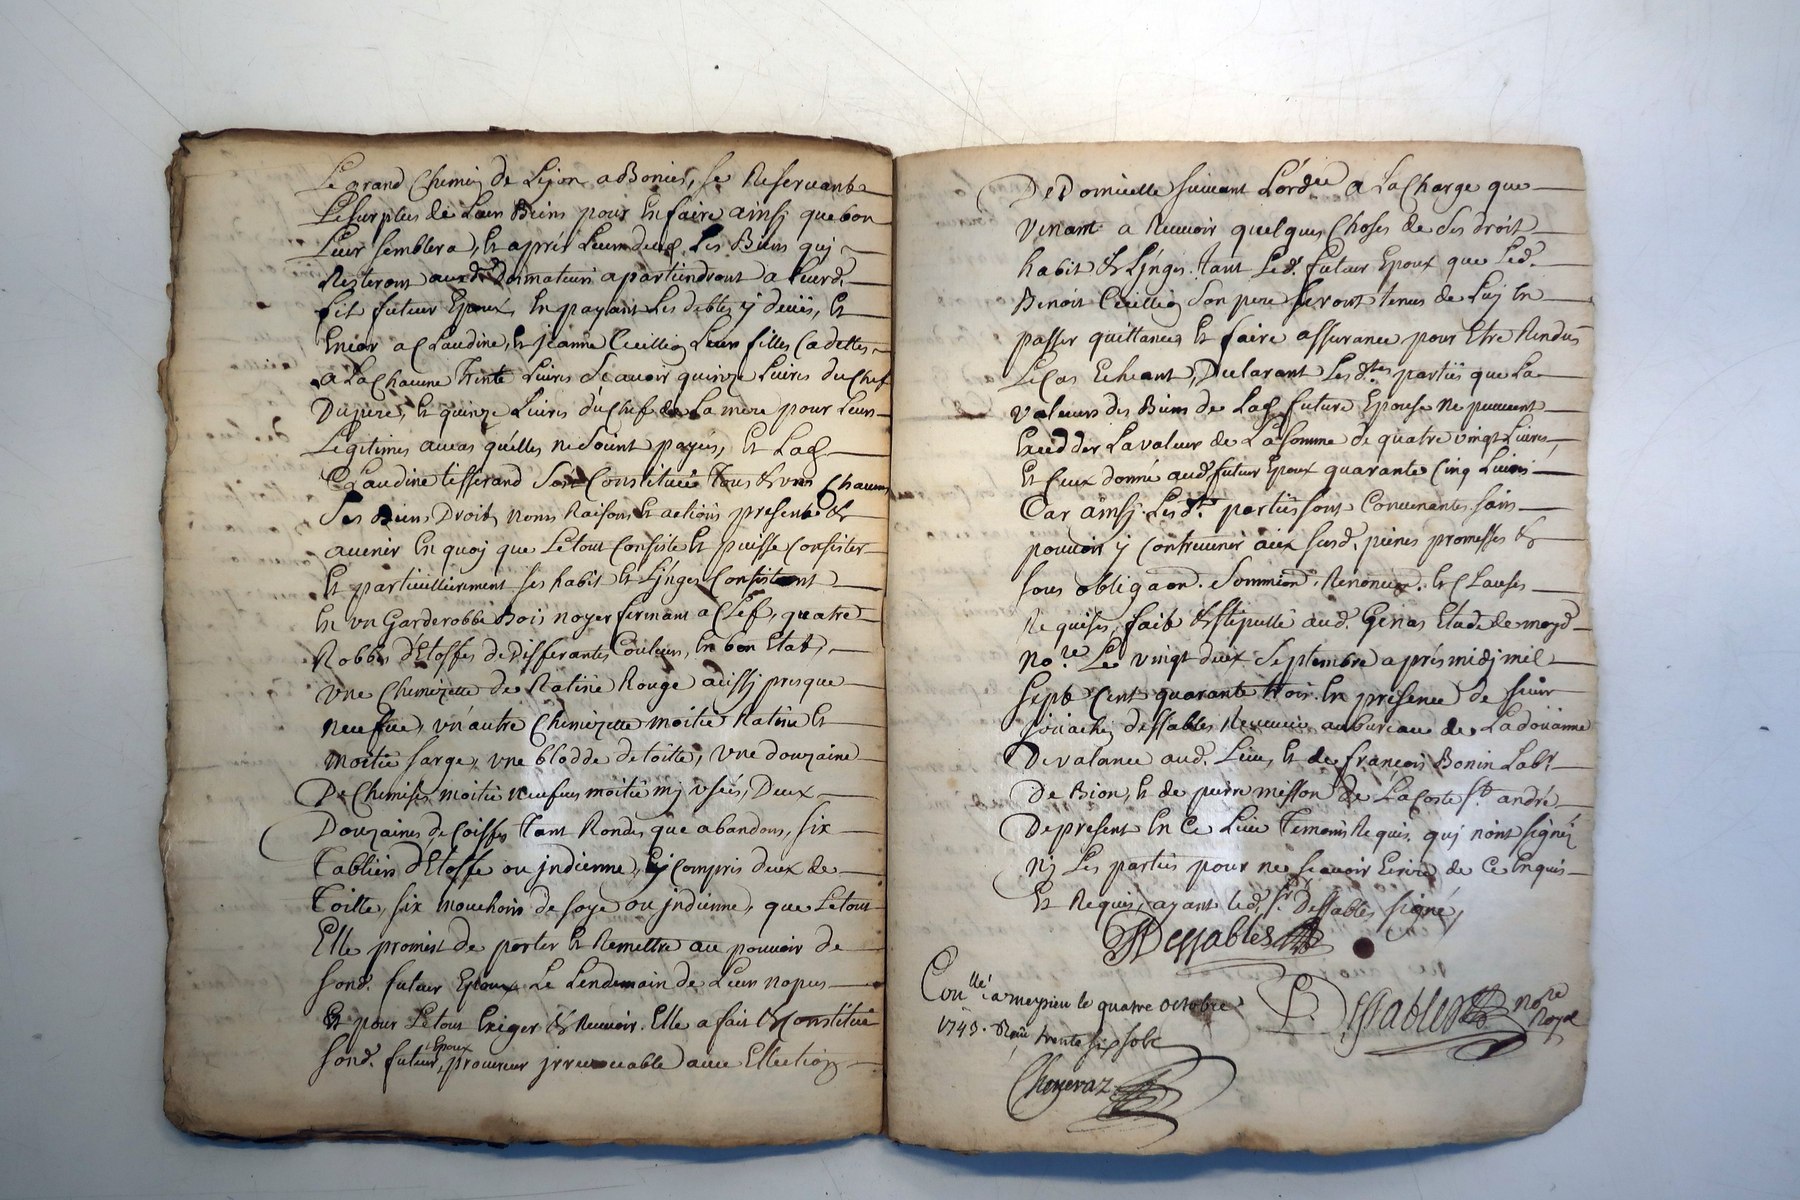 Le grand Chemin de Lyon a Bonies, se Reservants
Le surplus de Leurs Biens pour En faire ainsy que bon
Leur semblera, Et aprés Leurs deux Les Biens quj
Resteront aud. Donnateurs apartiendront a Leurd.
fils futeur Epoux, En payant Les debtes y deües, Et
Encor a Claudine, Et jeanne Cueillion Leurs filles Cadettes
a La Chacune Trente Livres Scavoir quinze Livres du Chef
Du pere, Et quinze Livres du Chef de La mere pour Leurs
Legitimes aucas qu'elles ne Soient payées, Et Lad.
Claudine tisserand Sest Constituée Tous & uns Chacuns
Ses Biens, Droits, noms Raisons Et actions presents &
avenir En quoj que Le tout Consiste Et puisse Consister
Et particuillierement ses habits Et Linges Consistant
En un Garderobbe Bois noyer fermant a Clef, quatre
Robbes d'Etoffes de Differantes Couleurs, En bon Etat,
une Chemizette de Ratine Rouge aussj presque
neufve, un'autre Chemizette moitie Ratine Et
moitie sarge, une blodde de toille, une douzaine
De Chemises moitie neufves moitie mj usées, Deux
Douzaines de Coiffes Tant Rondes que abandons, six
Tabliers d'Etoffe ou jndienne, Ej Compris deux de
Toille, six mouchoirs de soye ou jndienne, que Le tout
Elle promest de porter Et Remettre au pouvoir de
Sond. futeur Epoux Le Lendemain de Leurs nopces
Et pour Le tout Exiger & Recevoir Elle a fait & Constitué
Sond. futeur Epoux, procureur jrrevocable avec Ellection
De Domicille suivant L'ordce a La Charge que
venant a Recevoir quelques Choses de Ses droits
habits & Linges. Tant Led. futeur Epoux que Led.
Benoit Cueillion Son pere Seront tenus de Luj En
passer quittances Et faire assurance pour Etre Rendus
Le Cas Echeant, Declarant Lesdtes parties que La
valeurs des Biens de Lad. future Epouse ne peuvent
Excedder La valeur de La Somme de quatre vingt Livres,
Et Ceux donné aud. futeur Epoux quarante Cinq Livres
Car ainsj Lesdtes parties sont Convenantes Sans
pouvoir y Contrevenir aux Susd. peines promesses &
sous obligaon. Sommion. Renonciaon. Et Clauses
Requises, fait & Stipullé aud. Genas Etude de moyd.
nore. Le vingt deux Septembre aprés midj mil
Sept Cent quarante trois. En presence de sieur
jouachin dessables Receveur au bureau de La doüanne
De valance aud. Lieu, Et de françois Bonin Labr.
De Bion, Et de pierre misson de La Coste st. andré
De present En Ce Lieu Temoins Requis quj n'ont signés
nj Les parties pour ne scavoir Ecrire de Ce Enquis
Et Requis, ayant led. sr. Dessables signé,
JDessables
Conllé a meysieu le quatre octobre
1743. Reçu trente six sols
Cheyeraz
PDessables nore
Royal